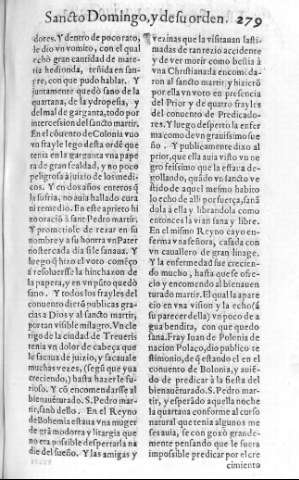 Sancto Domingo, y de su orden. 279
dores. Y dentro de poco rato,
le dio vn vomito, con el qual
echò gran cantidad de mate-
ria hedionda, teñida en san-
gre, con que pudo hablar. Y
juntamente quedò sano de la
quartana, de la ydropesia, y
del mal de garganta, todo por
intercession del sancto martir.
En el cõuento de Colonia vuo
vn frayle lego desta ordẽ que
tenia en la garganta vna pape
ra de gran fealdad, y no poco
peligrosa à juizio de los medi-
cos. Y en dos años enteros q̃
la sufria, no auia hallado cura
ni remedio. En este aprieto hi
zo oraciõ à sant Pedro martir.
Y prometiole de rezar en su
nombre y a su honrra vn Pater
noster cada dia si le sanaua. Y
luego q̃ hizo el voto começo
à resoluersse la hinchazon de
la papera, y en vn pũto quedò
sano. Y todos los frayles del
conuento dierõ publicas gra-
cias a Dios y al sancto martir,
por tan visible milagro. Vn cle
rigo de la ciudad de Treueris
tenia vn dolor de cabeça que
le sacaua de juizio, y sacauale
muchas vezes, (segũ que yua
creciendo,) hasta hazerle fu-
rioso. Y cõ encomendarsse al
bienauẽturado. S. Pedro mar-
tir, sanò dello. En el Reyno
de Bohemia estaua vna muger
de grã modorra y litargia que
no era possible despertarla na
die del sueño. Y las amigas y
vezinas que la visitauan lasti-
madas de tan rezio accidente
y de ver morir como bestia à
vna Christiana la encomẽda-
ron al sancto martir y hizierõ
por ella vn voto en presencia
del Prior y de quatro frayles
del conuento de Predicado-
res. Y luego desperto la enfer
ma como de vn grauissimo sue
ño. Y publicamente dixo al
prior, que ella auia visto vn ne
gro feissimo que la estaua de-
gollando, quãdo vn sancto ve
stido de aquel mesmo habito
lo echo de alli por fuerça, sanã
dola à ella y librandola como
entonces la vian sana y libre.
En el mismo Reyno cayo en-
ferma vna señora, casada con
vn cauallero de gran linage.
Y la enfermedad fue crecien-
do mucho, hasta que se ofre-
cio y encomendo al bienauen
turado martir. El qual la apare
cio en vna vision y la echo (à
su parecer della) vn poco de a
gua bendita, con que quedo
sana. Fray Iuan de Polenia de
nacion Polaco, dio publico te
stimonio, de q̃ estando el en el
conuento de Bolonia, y auiẽ-
do de predicar à la fiesta del
bienauẽturado. S. Pedro mar-
tir, y esperãdo aquella noche
la quartana conforme al curso
natural que tenia algunos me
ses auia, se con goxò grande-
mente pensando que le fuera
impossible predicar por el cre
cimiento